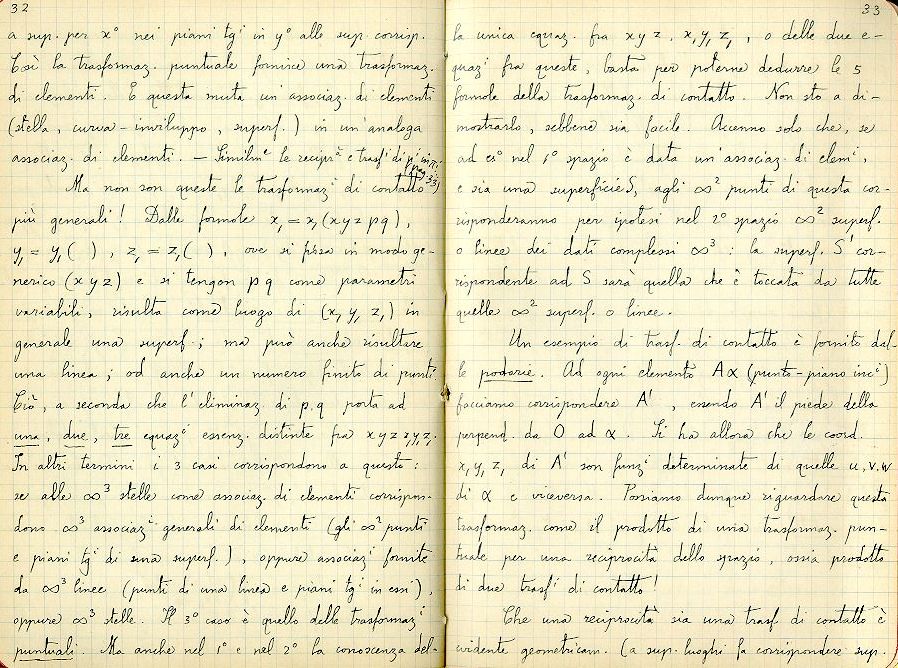 32
a sup. per x° nei piani tgⁱ in y° alle sup. corrisp.
Così la trasformaz. puntuale fornisce una trasformaz.
di elementi. E questa muta un'associaz. di elementi
(stella, curva-inviluppo, superf.) in un'analoga
associaz. di elementi. — Similmᵉ le reciprᵃ e trasfⁱ di
Ma non son queste le trasformazⁱ di contatto
più generali! Dalle formole x₁ = x₁(x y z p q),
y₁ = y₁( ), z₁ = z₁( ), ove si fissa in modo ge-
nerico (x y z) e si tengon p q come parametri
variabili, risulta come luogo di (x₁ y₁ z₁) in
generale una superf.; ma può anche risultare
una linea; od anche un numero finito di punti.
Ciò, a seconda che l'eliminaz. di p, q porta ad
una, due, tre equazⁱ essenz. distinte fra x y z x₁ y₁ z₁.
In altri termini i 3 casi corrispondono a questo:
se alle ∞³ stelle come associaz. di elementi corrispon-
dono ∞³ associazⁱ generali di elementi (gli ∞² punti
e piani tgⁱ di una superf.), oppure associazⁱ fornite
da ∞³ linee (punti di una linea e piani tgⁱ in essi),
oppure ∞³ stelle. Il 3° caso è quello delle trasformazⁱ
puntuali. Ma anche nel 1° e nel 2° la conoscenza del-
33
la unica equaz. fra x y z, x₁ y₁ z₁, o delle due e-
quazⁱ fra queste, basta per poterne dedurre le 5
formole della trasformaz. di contatto. Non sto a di-
mostrarlo, sebbene sia facile. Accenno solo che, se
ad es° nel 1° spazio è data un'associaz. di elemⁱ,
e sia una superficie S, agli ∞² punti di questa cor-
risponderanno per ipotesi nel 2° spazio ∞² superf.
o linee dei dati complessi ∞³: la superf. S' cor-
rispondente ad S sarà quella che è toccata da tutte
quelle ∞² superf. o linee.
Un esempio di trasf. di contatto è fornito dal-
le podarie. Ad ogni elemento Aα (punto-piano inciⁱ)
facciamo corrispondere A', essendo A' il piede della
perpend. da O ad α. Si ha allora che le coord.
x₁ y₁ z₁ di A' son funzⁱ determinate di quelle u, v, w
di α e viceversa. Possiamo dunque riguardare questa
trasformaz. come il prodotto di una trasformaz. pun-
tuale per una reciprocità dello spazio, ossia prodotto
di due trasfⁱ di contatto!
Che una reciprocità sia una trasf. di contatto è
evidente geometricam. (a sup. luoghi fa corrispondere sup.